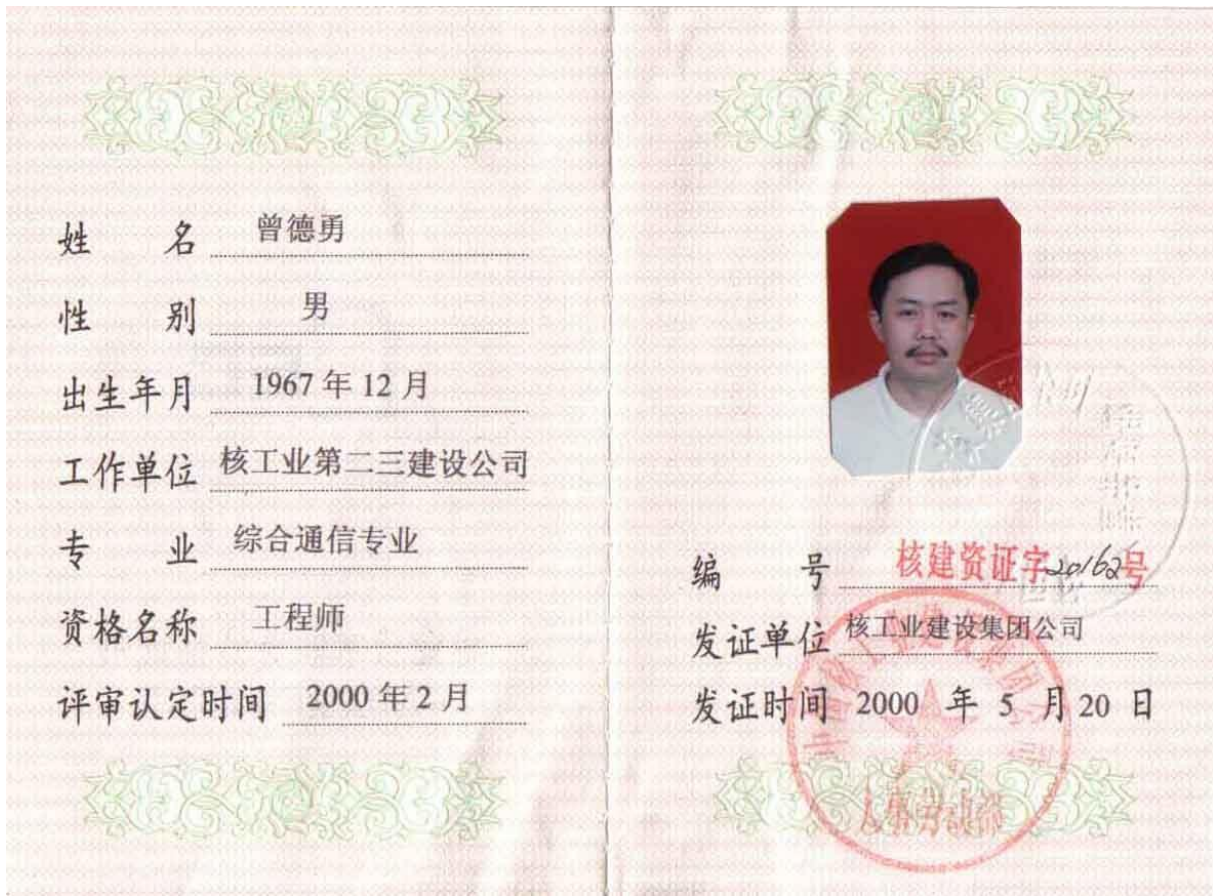 姓 名 曾德勇
性 别 男
出生年月 1967 年 12 月
工作单位 核工业第二三建设公司
专 业 综合通信专业
资格名称 工程师
评审认定时间 2000 年 2 月
编 号 核建资证字20162号
发证单位 核工业建设集团公司
发证时间 2000 年 5 月 20 日
中国核工业建设集团公司
人事劳动部